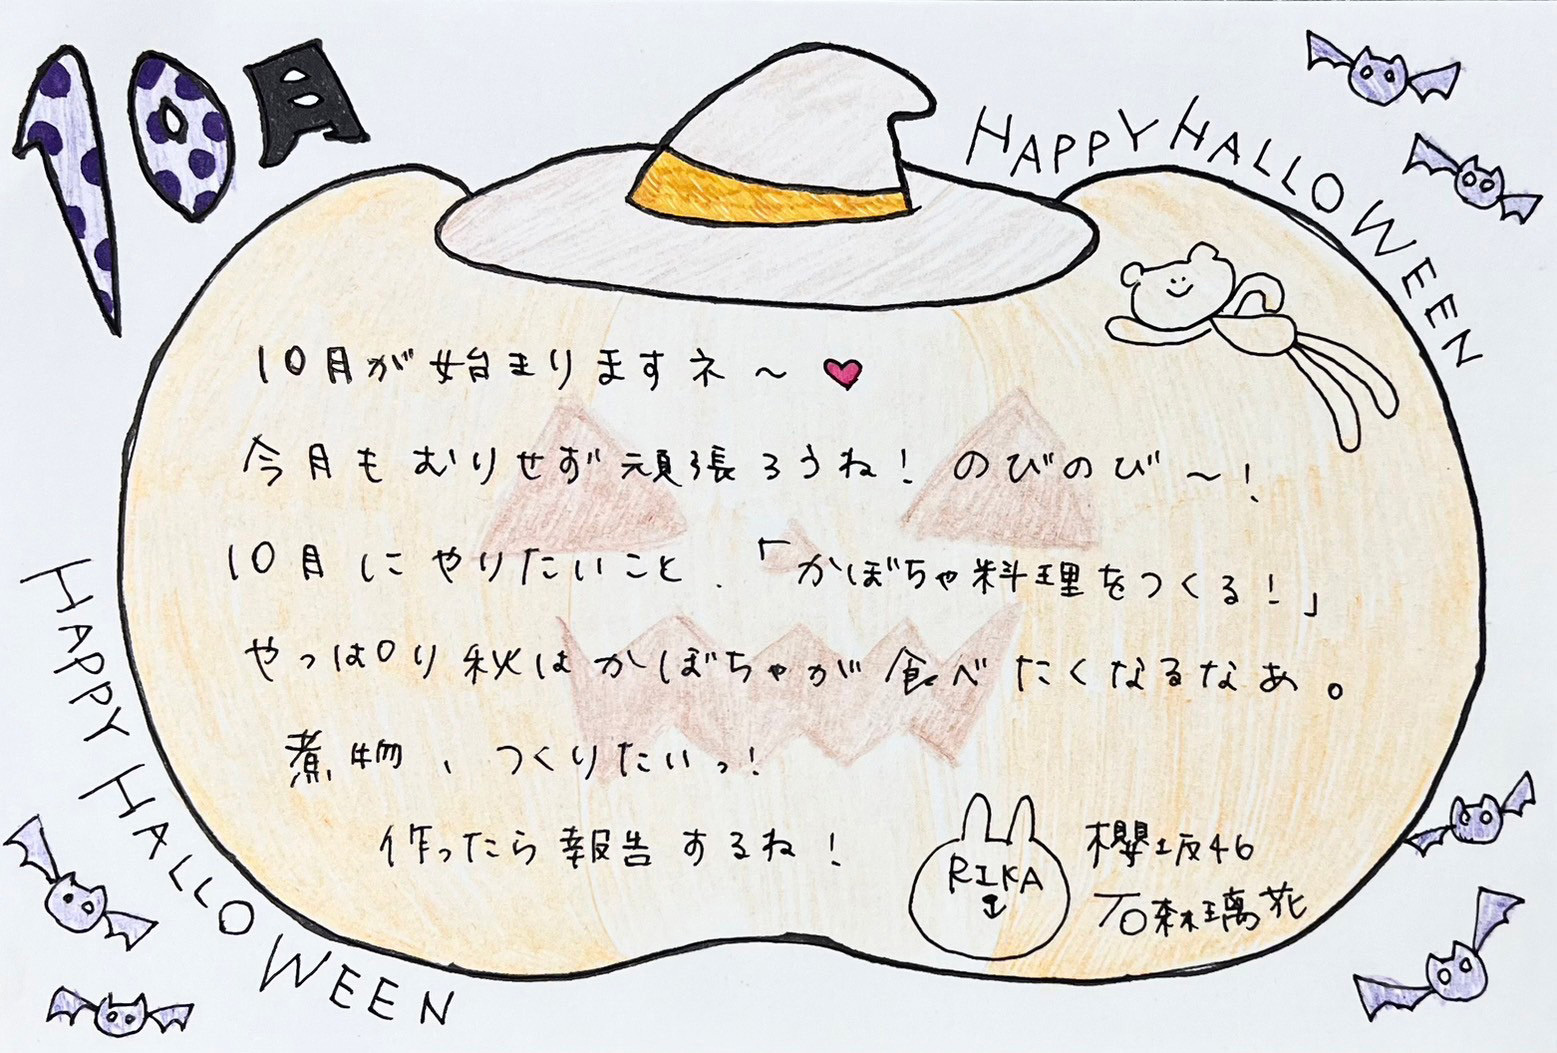 10月
HAPPY HALLOWEEN
10月が始まりますネ〜♥
今月もむりせず頑張ろうね！のびのび〜！
10月にやりたいこと、「かぼちゃ料理をつくる！」
やっぱり秋はかぼちゃが食べたくなるなあ。
煮物、つくりたいっ！
作ったら報告するね！
RIKA
櫻坂46
石森璃花
HAPPY HALLOWEEN